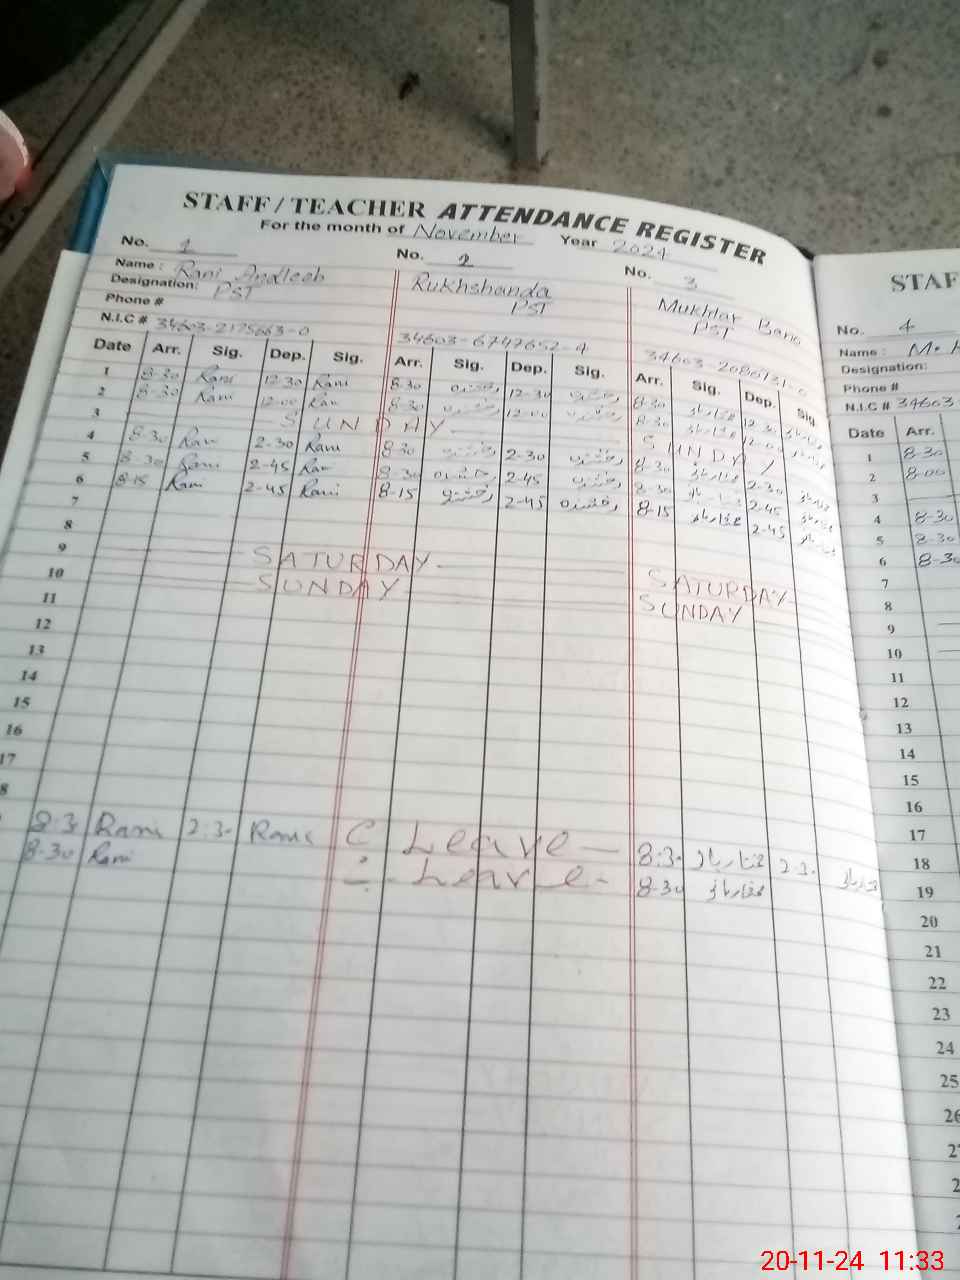 STAFF / TEACHER ATTENDANCE REGISTER
For the month of November Year 2024
No. 1 No. 2 No. 3
Name : Rani Andleeb Rukhshanda Mukhtar Bano
Designation: PST PST PST
Phone #
N.I.C # 34603-2175663-0 34603-6747652-4 34603-2086131-0
Date Arr. Sig. Dep. Sig. Arr. Sig. Dep. Sig. Arr. Sig. Dep. Sig
1 8-30 Rani 12-30 Rani 8-30 رخشندہ 12-30 رخشندہ 8-30 مختار بانو 12-30 مختار بانو
2 8-30 Rani 12-00 Ran 8-30 رخشندہ 12-00 رخشندہ 8-30 مختار بانو 12-00 مختار بانو
3 SUNDAY SUNDAY
4 8-30 Rani 2-30 Rani 8-30 رخشندہ 2-30 رخشندہ 8-30 مختار بانو 2-30 مختار بانو
5 8-30 Rani 2-45 Ran 8-30 رخشندہ 2-45 رخشندہ 8-30 مختار بانو 2-45 مختار بانو
6 8-15 Rani 2-45 Rani 8-15 رخشندہ 2-45 رخشندہ 8-15 مختار بانو 2-45 مختار بانو
7
8
9 SATURDAY SATURDAY
10 SUNDAY SUNDAY
11
12
13
14
15
16
17
8
8:3- Rani 2:3- Rani C Leave 8:3- مختار بانو 2-3- مختار بانو
8-30 Rani Leave 8-30 مختار بانو
STAF
No. 4
Name : M.
Designation:
Phone #
N.I.C # 34603-
Date Arr.
1 8-30
2 8-00
3
4 8-30
5 8-30
6 8-30
7
8
9
10
11
12
13
14
15
16
17
18
19
20
21
22
23
24
25
26
20-11-24 11:33